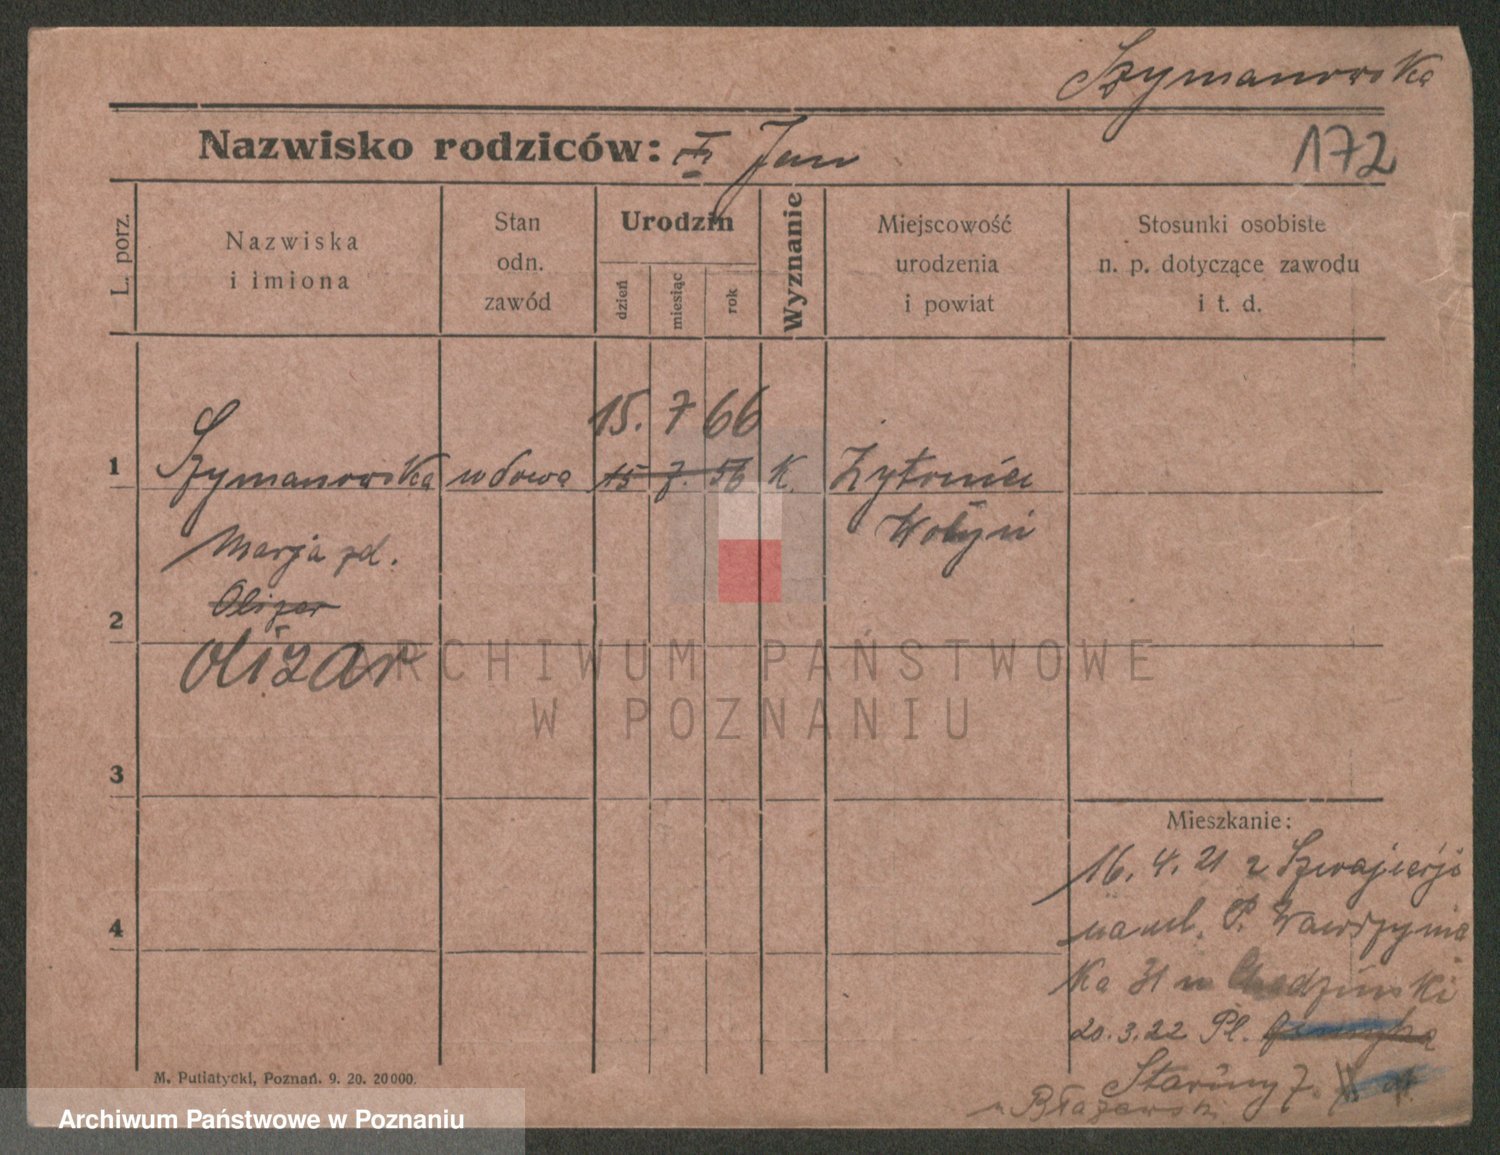 Szymanowska
Nazwisko rodziców: I Jan
172
L. porz.
Nazwiska
i imiona
Stan
odn.
zawód
Urodzin
dzień
miesiąc
rok
Wyznanie
Miejscowość
urodzenia
i powiat
Stosunki osobiste
n. p. dotyczące zawodu
i t. d.
15. 7 66
1 Szymanowska wdowa 15 7. 56 K. Żytomież
Wołyń
Marja zd.
2 Olizar
Olizar
ARCHIWUM PAŃSTWOWE
W POZNANIU
3
Mieszkanie:
16. 4. 21 z Szwajcarji
na ul. P. Wawrzynia
4
ka 31 u Chadzyński
20.3.22 Pl.
7.
u Błażewski
M. Putiatycki, Poznań. 9. 20. 20 000.
Archiwum Państwowe w Poznaniu